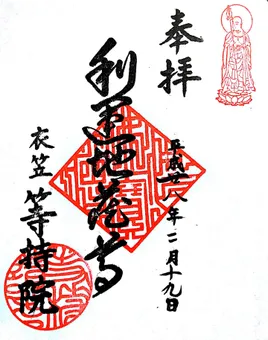 奉拝
平成廿八年二月十九日
利運地蔵尊
衣笠 等持院